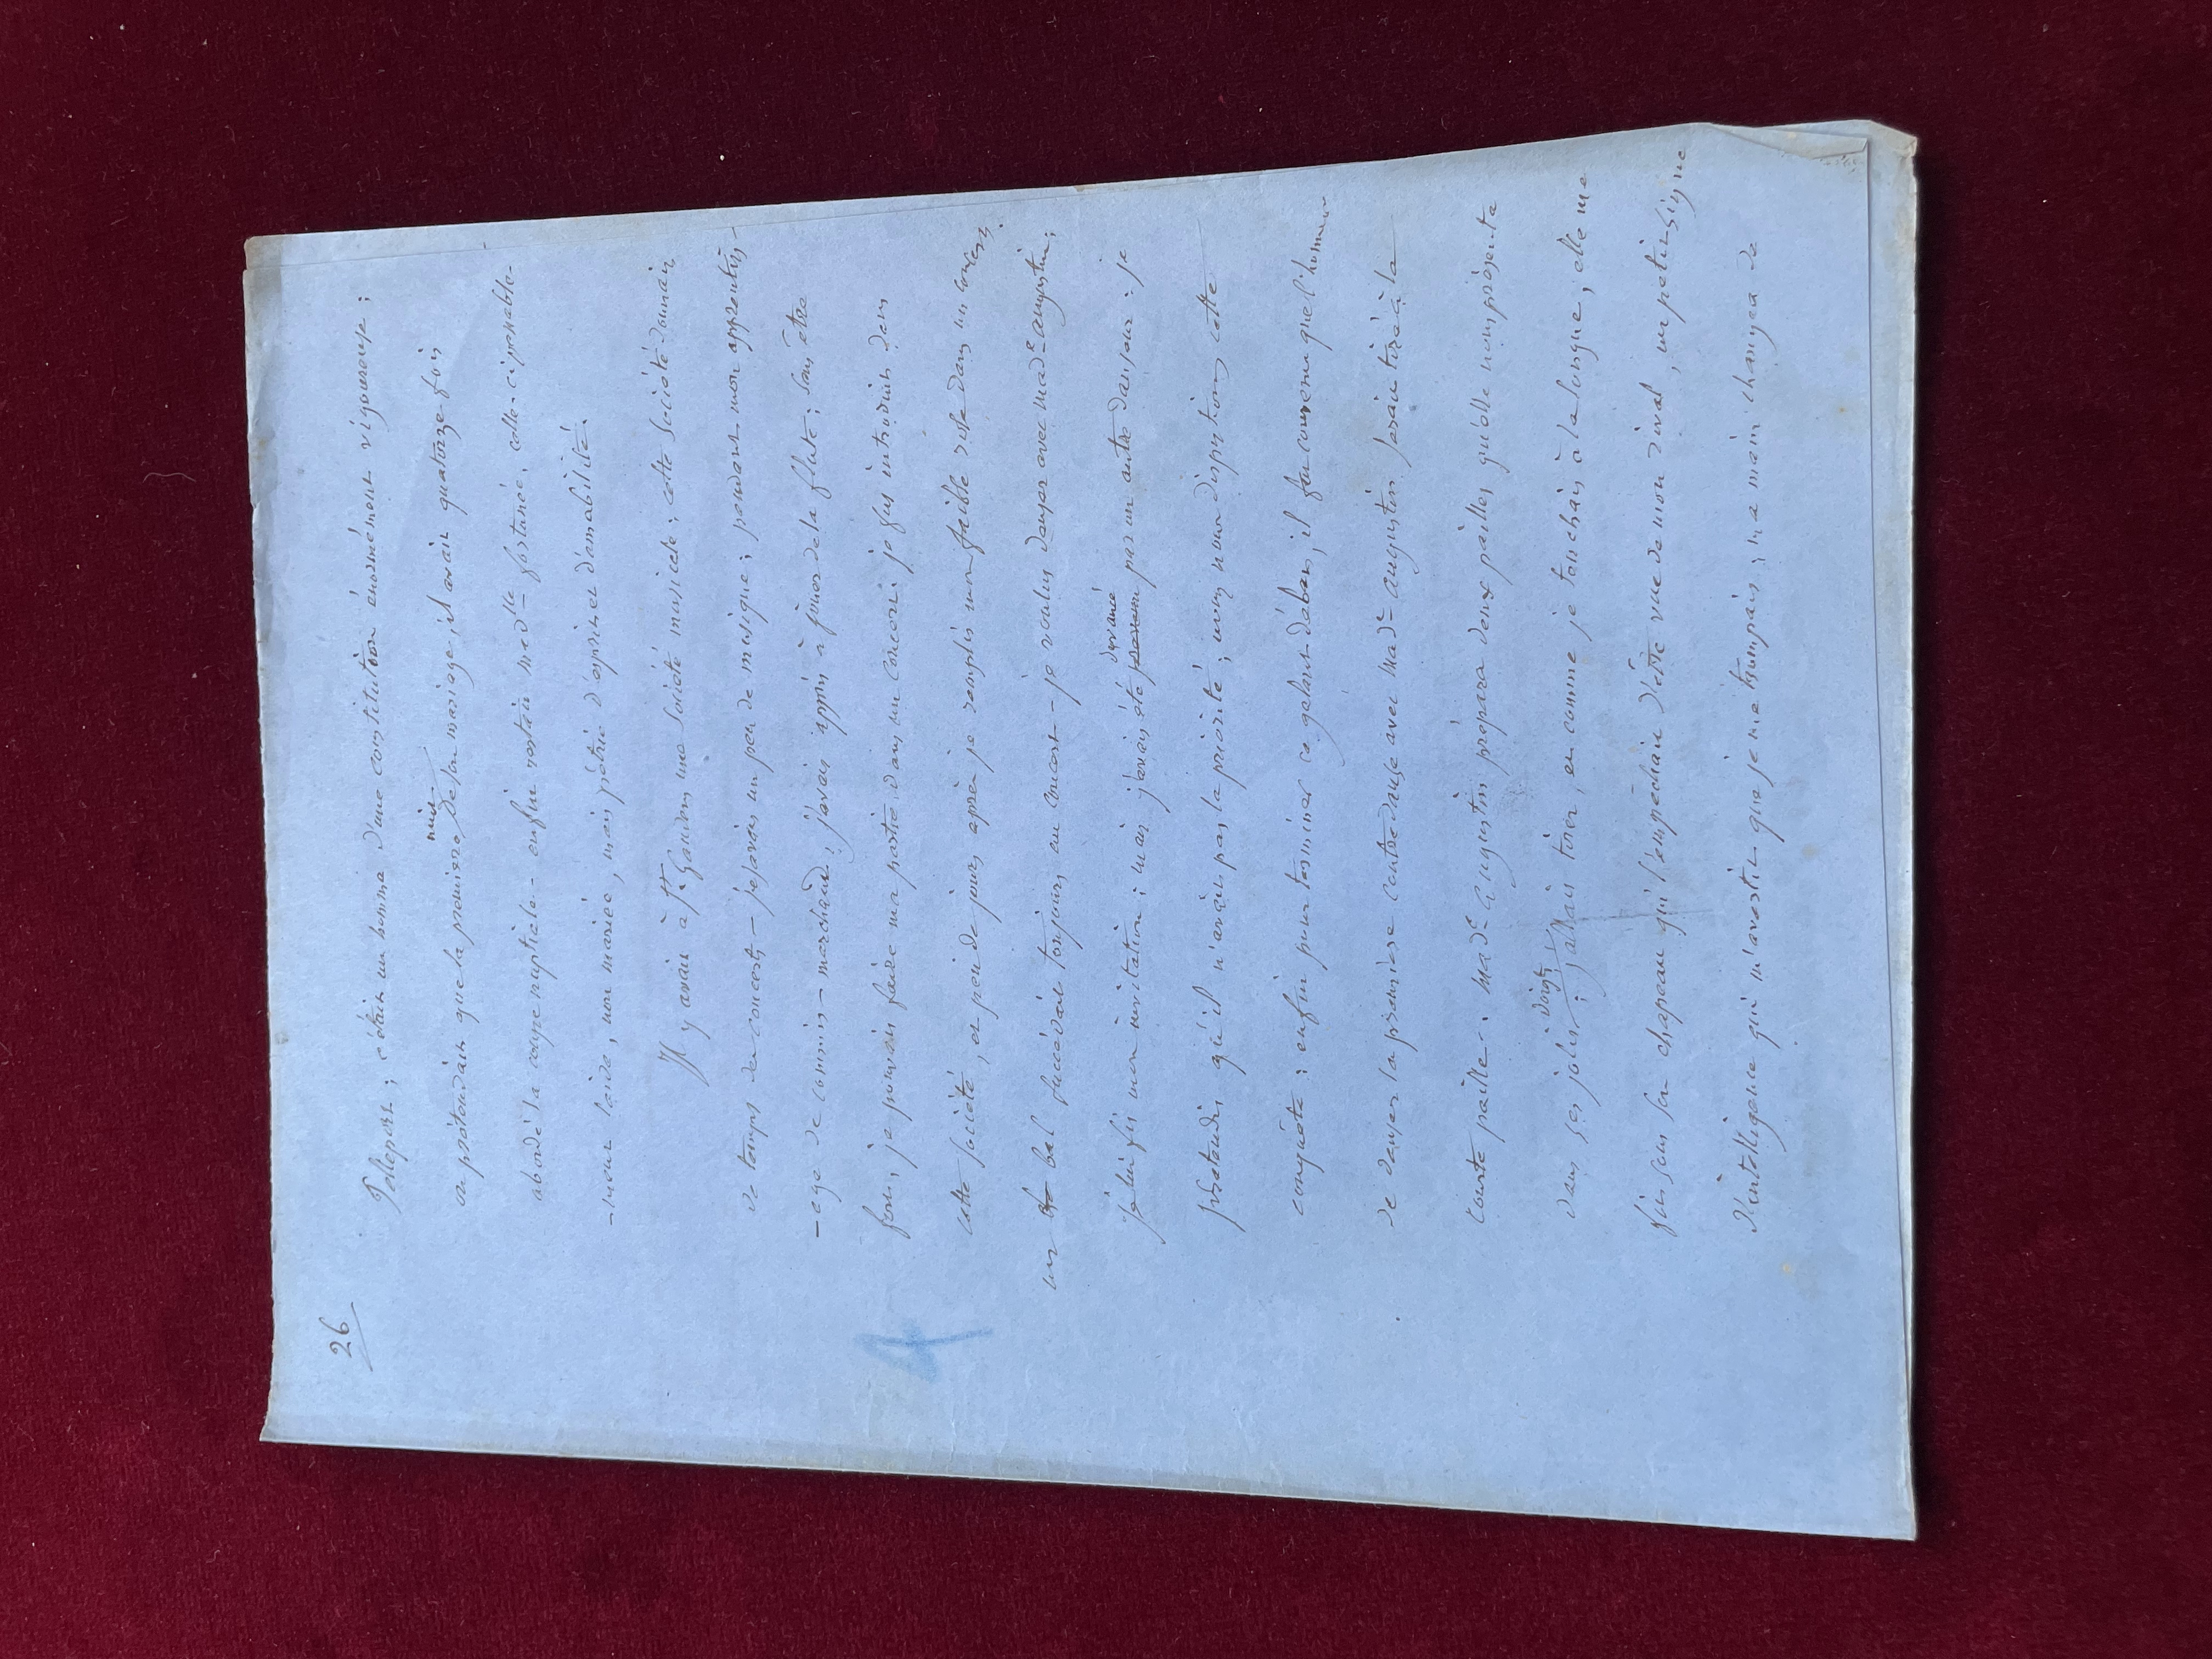 26
Pellepont ; c'était un homme d'une constitution énormément vigoureuse ;
on prétendait que la première nuit de son mariage, il avait quatorze fois
abordé la coupe nuptiale - enfin restait Madlle fortanée, celle-ci passable-
-ment laide, non mariée, mais pétrie d'esprit et d'amabilité.
Il y avait à St Gaudens une société musicale ; cette société donnait
de temps des concerts - je savais un peu de musique ; pendant mon apprentis-
-sage de commis-marchand, j'avais appris à jouer de la flute ; sans être
fort, je pouvais faire ma partie dans un concert ; je fus introduit dans
cette société, et peu de jours après je remplis mon faible rôle dans un concert ;
un bal succédait toujours au concert - je voulus danser avec Made augustin ;
je lui fis mon invitation ; mais j'avais été devancé par un autre danseur : je
prétendis qu'il n'avait pas la priorité ; nous nous disputions cette
conquête : enfin pour terminer ce galant débat, il fut convenu que l'honneur
de danser la première contredanse avec Made augustin serait tiré à la
courte paille. Made augustin prépara deux pailles qu'elle nous présenta
dans ses jolis doigts ; j'allais tirer, et comme je touchais à la longue, elle me
fit sous son chapeau qui l'empêchait d'être vue de mon rival, un petit signe
d'intelligence qui m'avertit que je me trompais ; ma main changea de